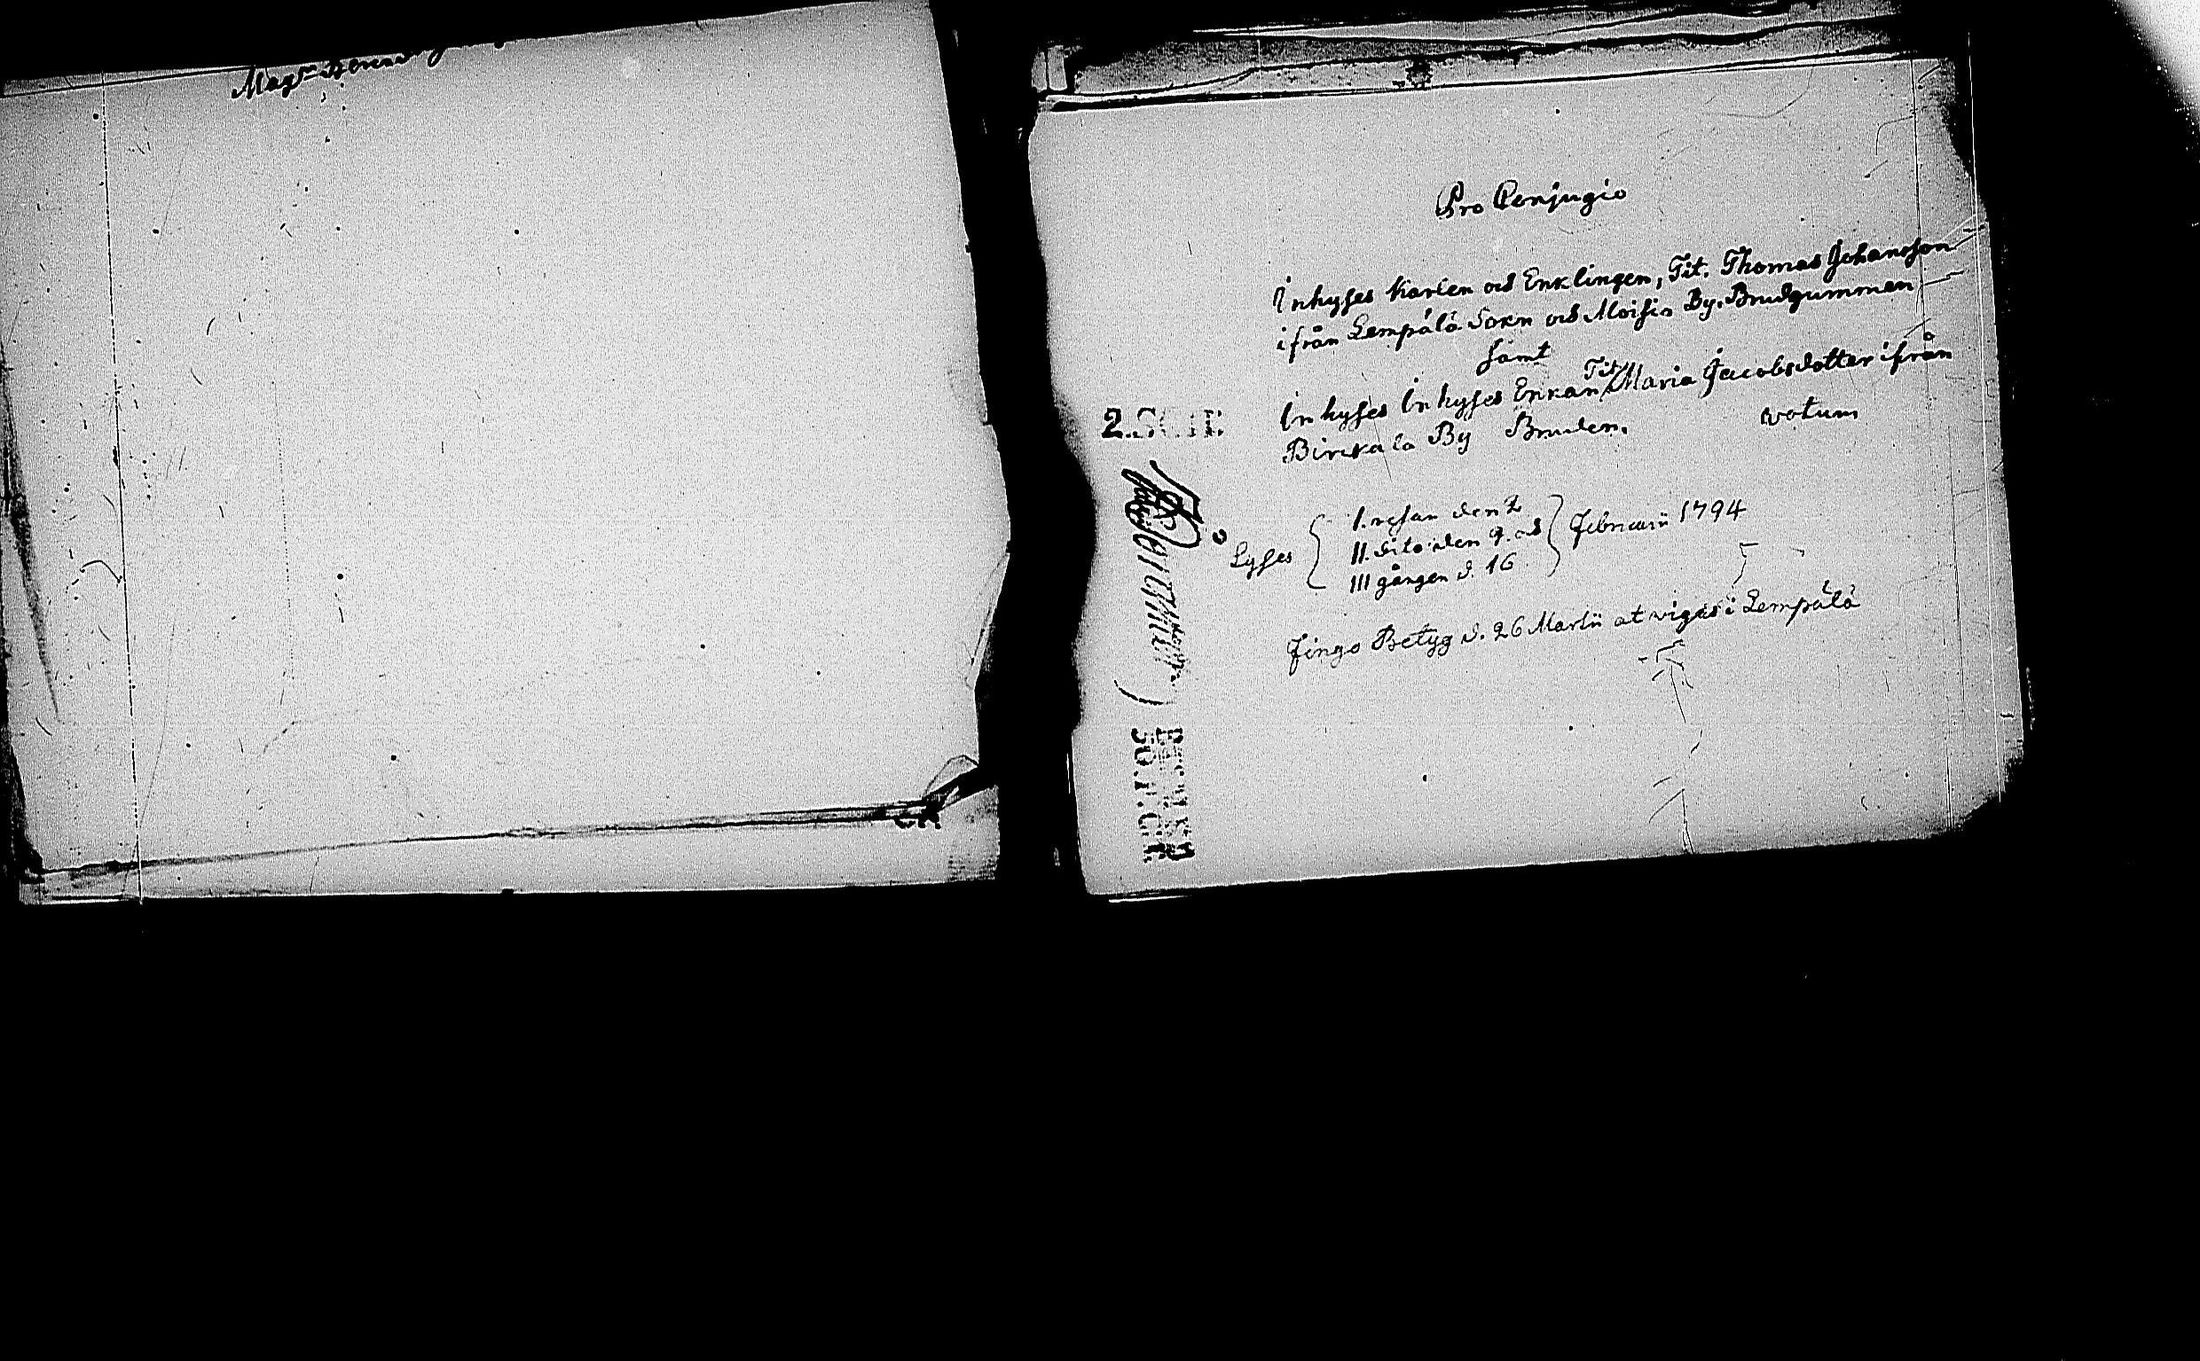 Mag:r
Pro Conjugio
Inhyses Karlen och Enklingen, Tit. Thomas Johansson
ifrån Lempälä Sokn och Moisio By. Brudgummen
samt
Inhyses Inhyses Enkan Tit. Maria Jacobsdotter ifrån
Birckala By Bruden. votum
Lyses
I. resan den 2
II. dito den 9. och
III gången d. 16
Februarii 1794
Fingo Betyg d. 26 Martii at vigas i Lempälä
2.